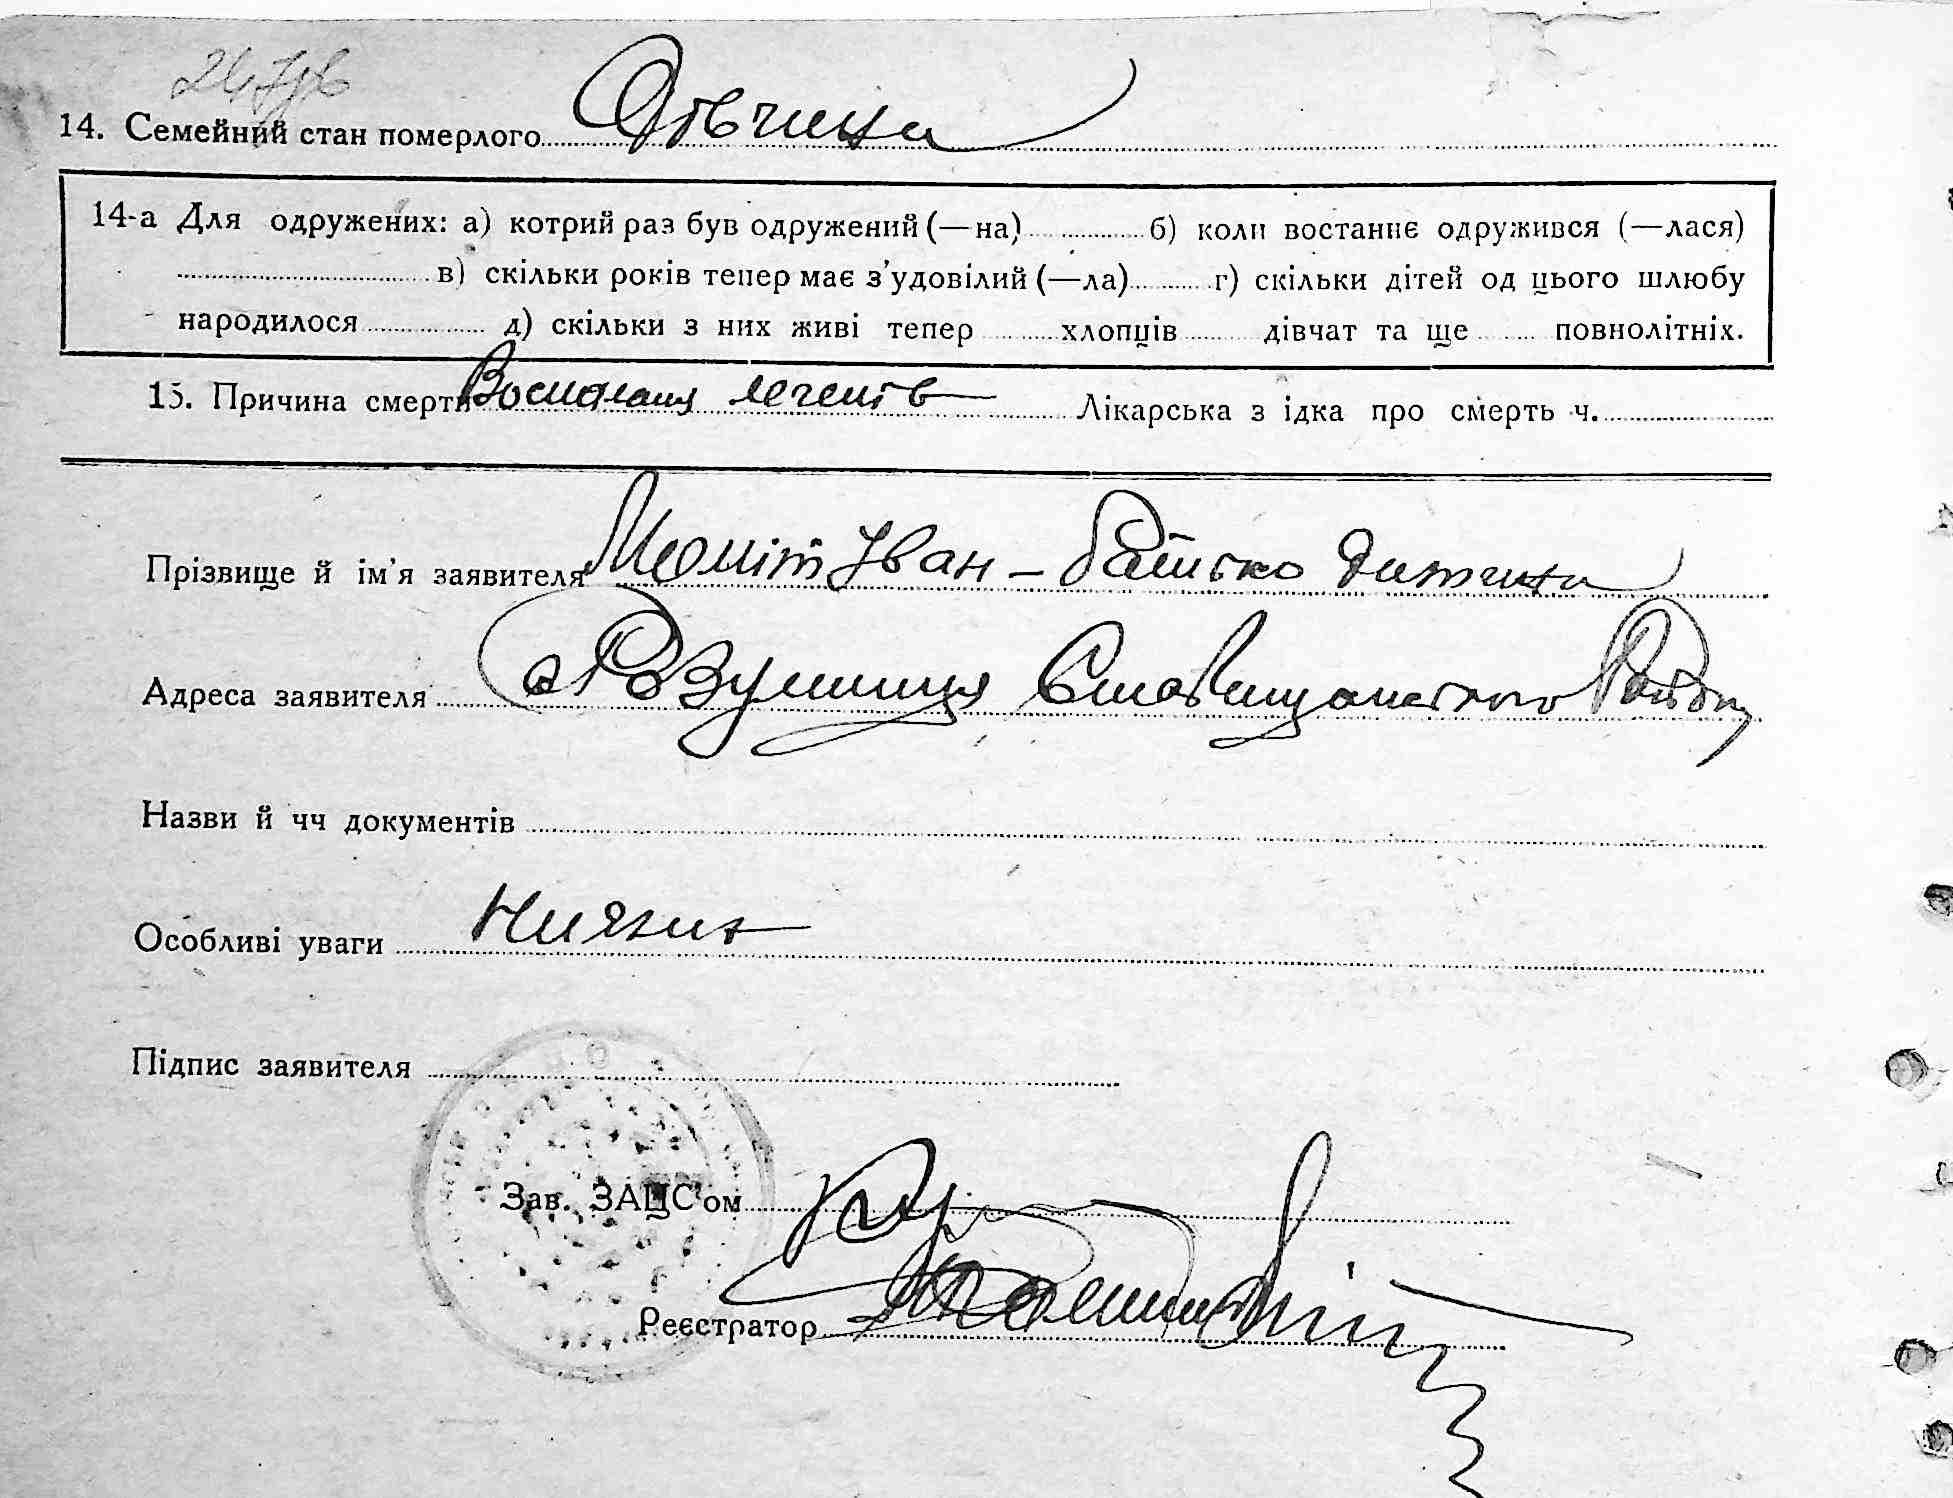 14. Семейний стан померлого Дівчина
14-а Для одружених: а) котрий раз був одружений (—на) б) коли востаннє одружився (—лася)
в) скільки років тепер має з’удовілий (—ла) г) скільки дітей од цього шлюбу
народилося д) скільки з них живі тепер хлопців дівчат та ще повнолітніх.
15. Причина смерти Лікарська з ідка про смерть ч.
Прізвище й ім’я заявителя Іван – батько дитини
Адреса заявителя с Розумниця Ставищанського Району
Назви й чч документів
Особливі уваги
Підпис заявителя
Зав. ЗАЦС’ом
Реєстратор